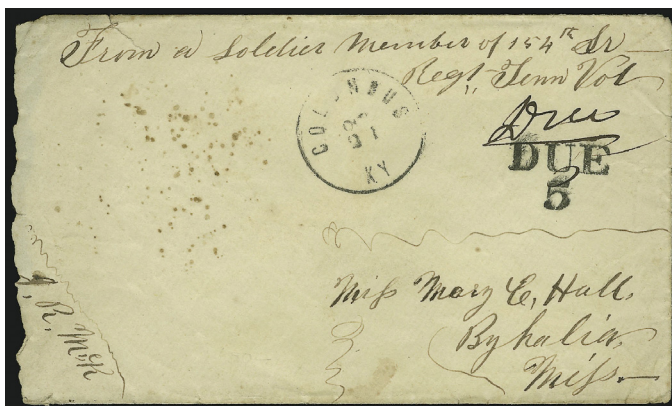 From a Soldier Member of 154th Sr
Regt Tenn Vol
COLUMBUS
KY
Due
DUE
5
Miss Mary E, Hall.
Byhalia,
Miss.
J, R, McK